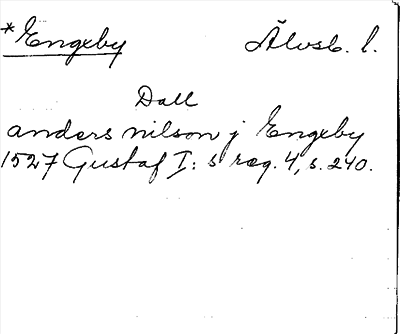 *Engeby Älvsb. l.
Dall
anders nilson j Engeby
1527 Gustaf I:s reg. 4, s. 240.